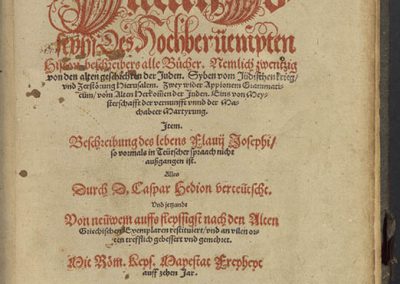 Flauij Jo
sephi/ Des Hochberüempten
Histori beschreibers alle Bücher. Nemlich zwentzig
von den alten geschichten der Juden. Syben vom Jüdischen krieg/
vnd Zerstörung Hierusalem. Zwey wider Appionem Grammati-
cum/ vom Alten Herkom̃en der Juden. Eins von Mey-
sterschafft der vernunfft vnnd der Ma-
chabeer Martyrung.
Item.
Beschreibung des lebens Flauij Josephi/
so vormals in Teütscher spraach nicht
außgangen ist.
Alles
Durch D. Caspar Hedion verteütscht.
Vnd jetzunde
Von neüwem auffs fleyssigst nach den Alten
Griechischen Exemplaren restituiert/ vnd an vilen or-
ten trefflich gebessert vnd gemehret.
Mit Röm. Keys. Mayestat Freyheyt
auff zehen Jar.